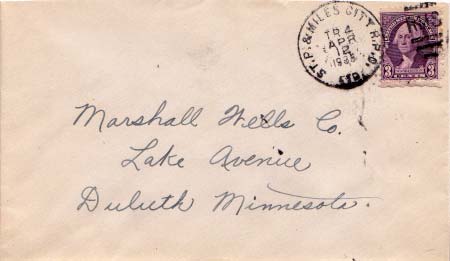 ST.P. & MILES CITY R.P.O.
TR 4
APR
15
3 CENTS 3
Marshall Wells Co.
Lake Avenue
Duluth Minnesota.